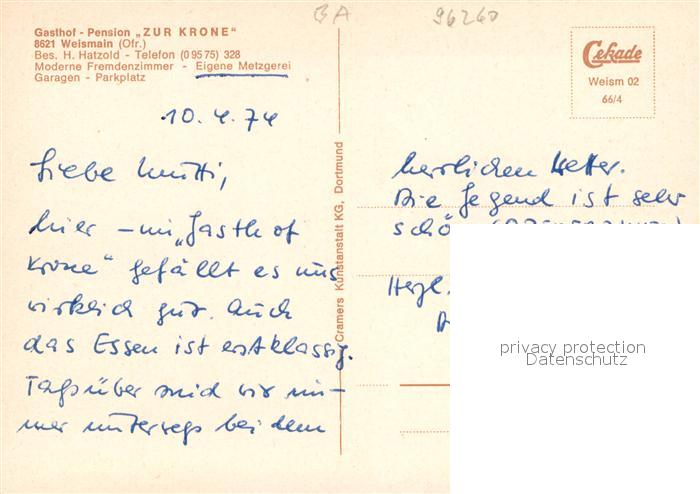 BA 96260
Gasthof - Pension „ZUR KRONE"
8621 Weismain (Ofr.)
Bes. H. Hatzold - Telefon (0 95 75) 328
Moderne Fremdenzimmer - Eigene Metzgerei
Garagen - Parkplatz
Cekade
Weism 02
66/4
Cramers Kunstanstalt KG, Dortmund
10.4.74
Liebe Mutti,
hier – im „Gasthof
Krone" gefällt es uns
wirklich gut. Auch
das Essen ist erstklassig.
Tagsüber sind wir im-
mer unterwegs bei dem
herrlichen Wetter.
Die Gegend ist sehr
schö
Herzl.
privacy protection
Datenschutz